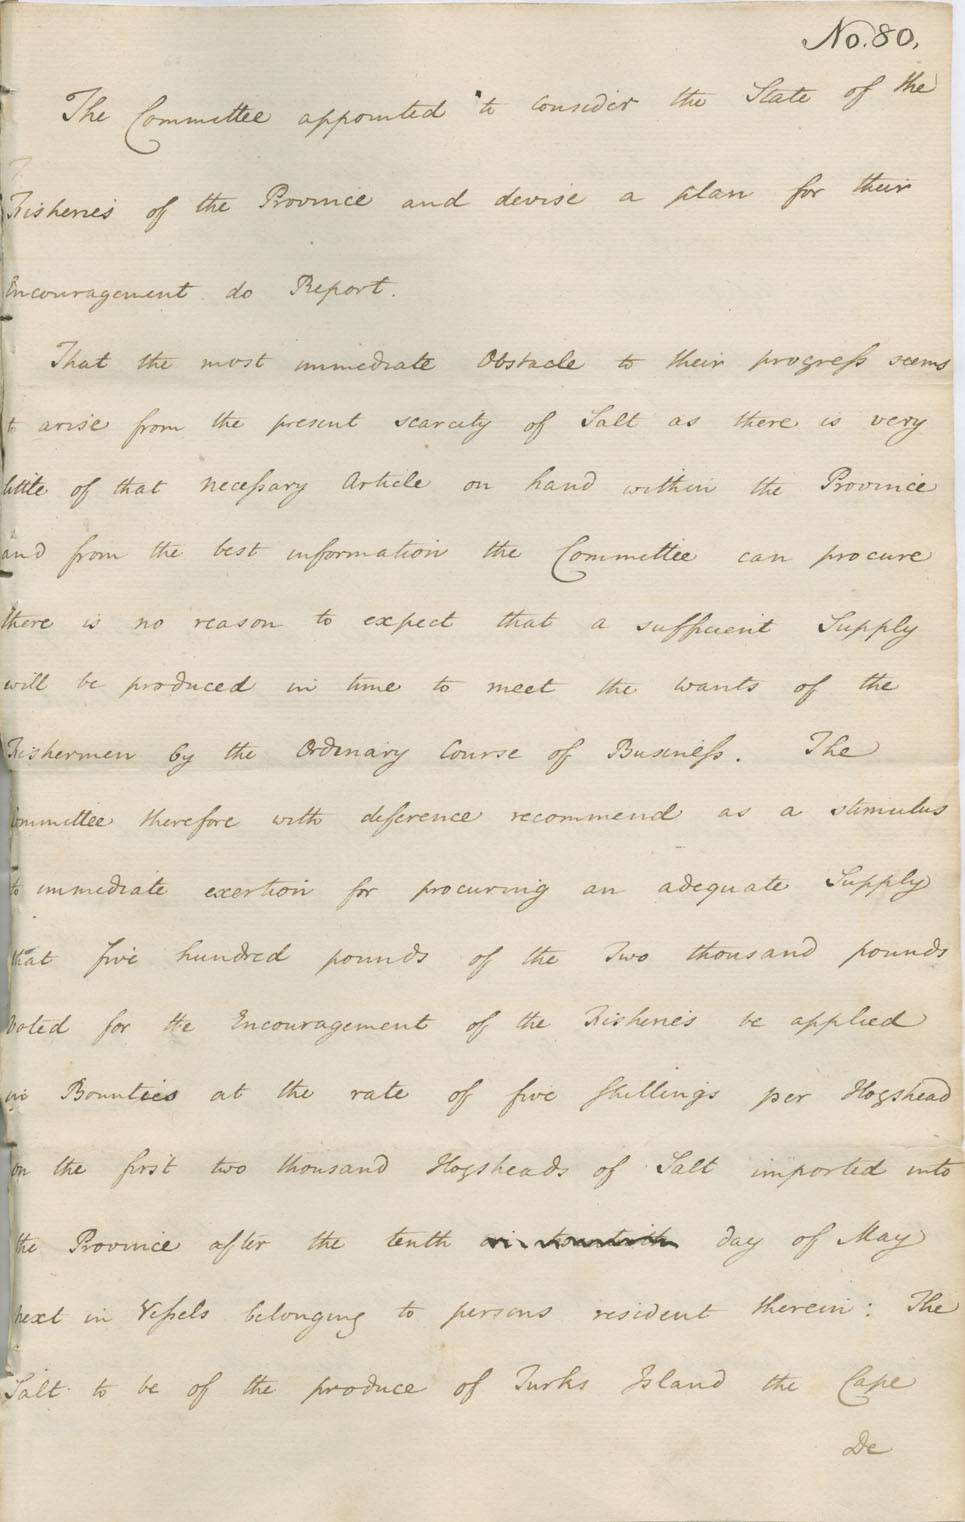 No. 80,
The Committee appointed to consider the State of the
Fisheries of the Province and devise a plan for their
Encouragement do Report.
That the most immediate Obstacle to their progreſs seems
to arise from the present scarcity of Salt as there is very
little of that neceſsary Article on hand within the Province
and from the best information the Committee can procure
there is no reason to expect that a sufficient Supply
will be produced in time to meet the wants of the
Fishermen by the Ordinary Course of Busineſs. The
Committee therefore with deference recommend as a stimulus
to immediate exertion for procuring an adequate Supply
that five hundred pounds of the Two thousand pounds
Voted for the Encouragement of the Fisheries be applied
in Bounties at the rate of five shillings per Hogshead
on the first two thousand Hogsheads of Salt imported into
the Province after the tenth day of May
next in Veſsels belonging to persons resident therein: The
Salt to be of the produce of Turks Island the Cape
De